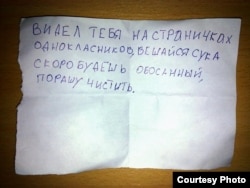 ВИДЕЛ ТЕБЯ НА СТРАНИЧКАХ
ОДНОКЛАСНИКОВ, ВЕШАЙСЯ СУКА
СКОРО БУДЕШЬ ОБОСАННЫЙ,
ПОРАШУ ЧИСТИТЬ.
Courtesy Photo